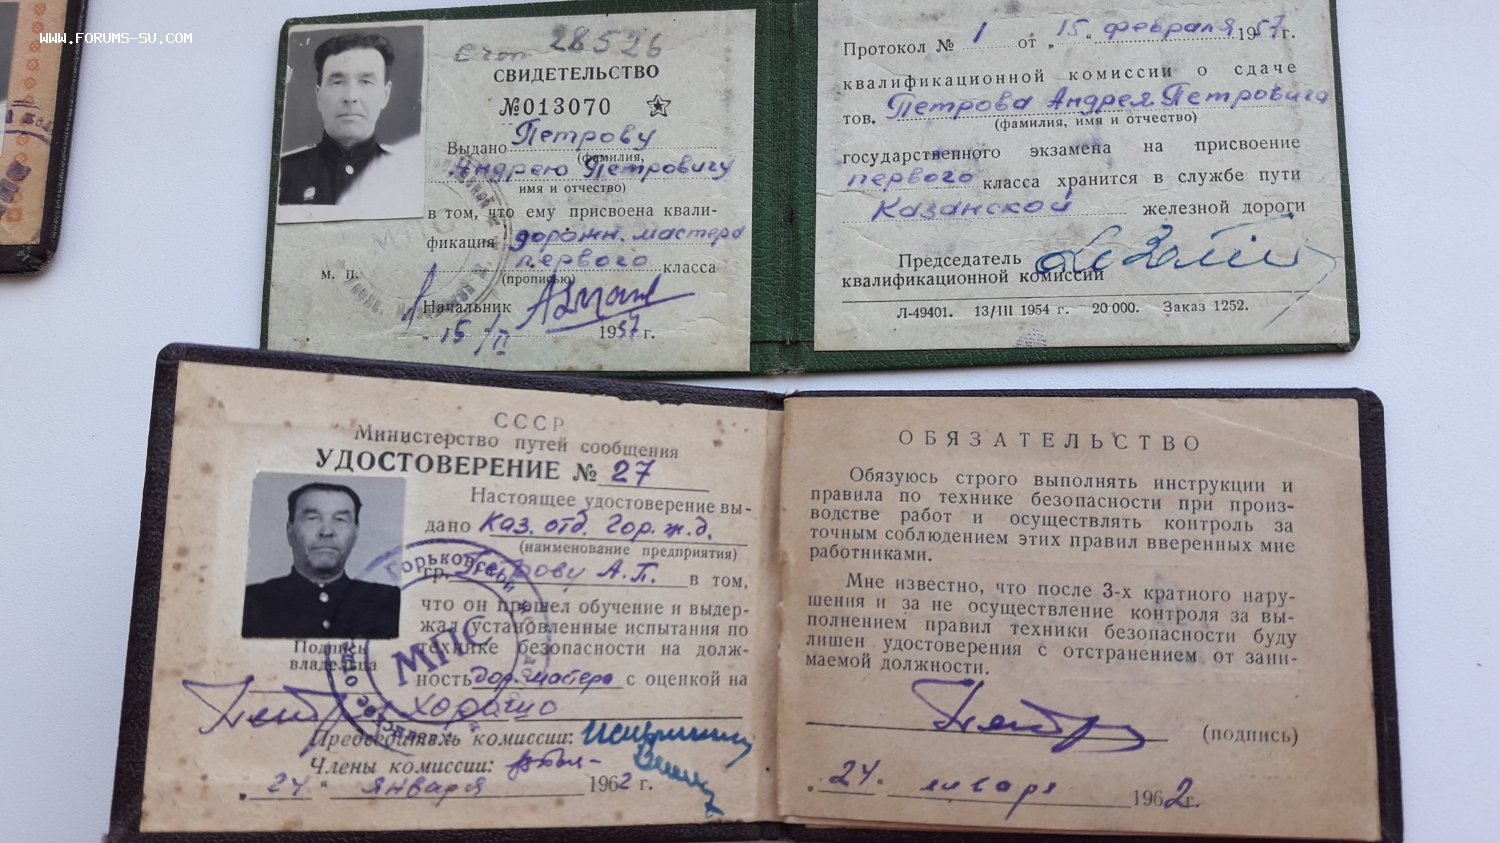 www.forums-su.com
Счет 28526
СВИДЕТЕЛЬСТВО
№013070
Выдано Петрову
(фамилия,
Андрею Петровичу
имя и отчество)
в том, что ему присвоена квали-
фикация дорожн. мастера
первого класса
(прописью)
м. п.
Начальник
„15“/II 1957 г.
МПС
Протокол № 1 от „15“ февраля 1957 г.
квалификационной комиссии о сдаче
тов. Петрова Андрея Петровича
(фамилия, имя и отчество)
государственного экзамена на присвоение
первого класса хранится в службе пути
Казанской железной дороги
Председатель
квалификационной комиссии
Л-49401. 13/III 1954 г. 20 000. Заказ 1252.
СССР
Министерство путей сообщения
УДОСТОВЕРЕНИЕ № 27
Настоящее удостоверение вы-
дано Каз. отд. Гор. ж. д.
(наименование предприятия)
гр. Петрову А. П. в том,
что он прошел обучение и выдер-
жал установленные испытания по
технике безопасности на долж-
ность дор. мастера с оценкой на
хорошо
Подпись
владельца
Петр
Председатель комиссии:
Члены комиссии:
„24“ января 1962 г.
Горьковской
МПС
ОБЯЗАТЕЛЬСТВО
Обязуюсь строго выполнять инструкции и
правила по технике безопасности при произ-
водстве работ и осуществлять контроль за
точным соблюдением этих правил вверенных мне
работниками.
Мне известно, что после 3-х кратного нару-
шения и за не осуществление контроля за вы-
полнением правил техники безопасности буду
лишен удостоверения с отстранением от зани-
маемой должности.
Петр
(подпись)
„24“ января 1962 г.